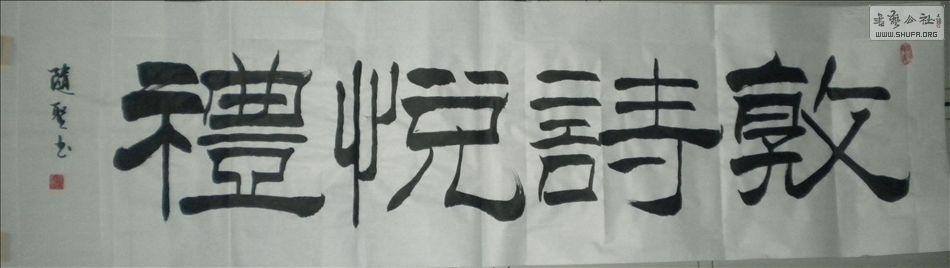 敦詩悦禮
隨聖书
书艺公社
WWW.SHUFA.ORG